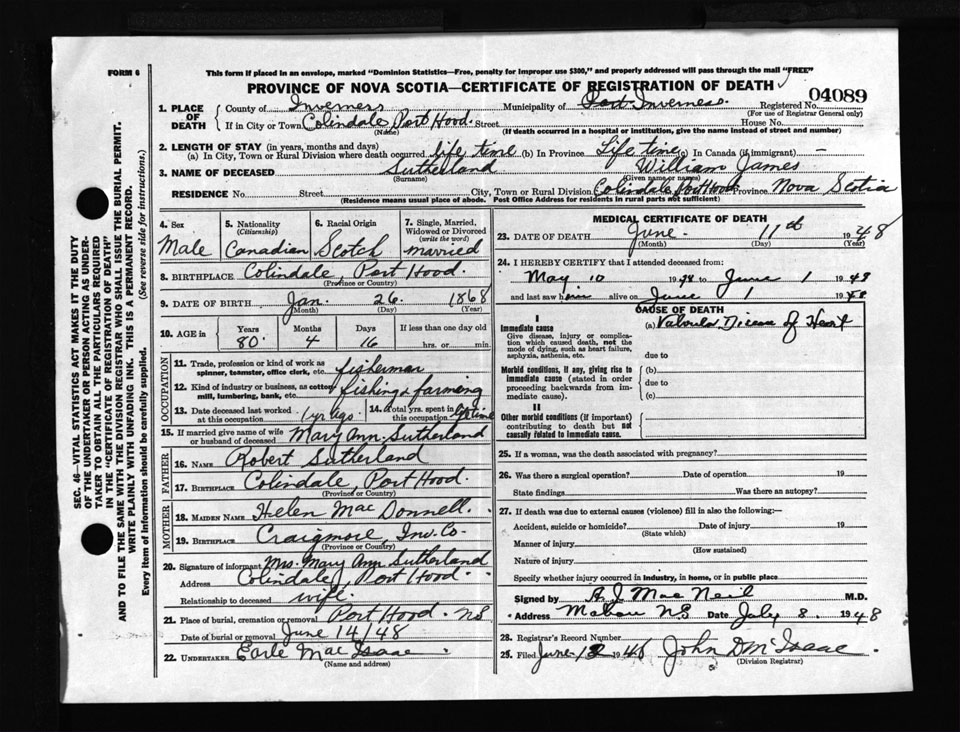 FORM 6
This form if placed in an envelope, marked "Dominion Statistics—Free, penalty for improper use $300," and properly addressed will pass through the mail "FREE"
PROVINCE OF NOVA SCOTIA—CERTIFICATE OF REGISTRATION OF DEATH
04089
1. PLACE OF DEATH County of Inverness Municipality of Port Inverness. Registered No.
(For use of Registrar General only)
If in City or Town Colindale, Port Hood. Street House No.
(Name) (If death occurred in a hospital or institution, give the name instead of street and number)
2. LENGTH OF STAY (in years, months and days)
(a) In City, Town or Rural Division where death occurred life time (b) In Province Life time, In Canada (if immigrant) —
3. NAME OF DECEASED Sutherland William James
(Surname) (Given name or names)
RESIDENCE No. Street City, Town or Rural Division Colindale, Port Hood Province Nova Scotia
(Residence means usual place of abode. Post Office Address for residents in rural parts not sufficient)
4. Sex Male
5. Nationality (Citizenship) Canadian
6. Racial Origin Scotch
7. Single, Married, Widowed or Divorced (write the word) married
8. BIRTHPLACE Colindale, Port Hood.
(Province or Country)
9. DATE OF BIRTH Jan. 26. 1868
(Month) (Day) (Year)
10. AGE in Years 80. Months 4 Days 16 If less than one day old hrs. or min.
OCCUPATION
11. Trade, profession or kind of work as spinner, teamster, office clerk, etc. fisherman
12. Kind of industry or business, as cotton mill, lumbering, bank, etc. fishing & farming
13. Date deceased last worked at this occupation 1 yr ago.
14. Total yrs. spent in this occupation life time
15. If married give name of wife or husband of deceased Mary Ann Sutherland
FATHER
16. NAME Robert Sutherland
17. BIRTHPLACE Colindale, Port Hood.
(Province or Country)
MOTHER
18. MAIDEN NAME Helen Mac Donnell.
19. BIRTHPLACE Craigmore, Inv. Co.
(Province or Country)
20. Signature of informant Mrs. Mary Ann Sutherland
Address Colindale, Port Hood.
Relationship to deceased wife.
21. Place of burial, cremation or removal Port Hood. NS
Date of burial or removal June 14/48
22. UNDERTAKER Earle Mac Isaac
(Name and address)
MEDICAL CERTIFICATE OF DEATH
23. DATE OF DEATH June. 11th 1948
(Month) (Day) (Year)
24. I HEREBY CERTIFY that I attended deceased from:
May 10 1948 to June 1 1948
and last saw him alive on June 1 1948
CAUSE OF DEATH
I
Immediate cause
Give disease, injury or complication which caused death, not the mode of dying, such as heart failure, asphyxia, asthenia, etc.
(a) Valvular Disease of Heart
due to
Morbid conditions, if any, giving rise to immediate cause (stated in order proceeding backwards from immediate cause).
(b)
due to
(c)
II
Other morbid conditions (if important) contributing to death but not causally related to immediate cause.
25. If a woman, was the death associated with pregnancy?
26. Was there a surgical operation? Date of operation 19
State findings Was there an autopsy?
27. If death was due to external causes (violence) fill in also the following:—
Accident, suicide or homicide? Date of injury 19
(State which)
Manner of injury
(How sustained)
Nature of injury
Specify whether injury occurred in industry, in home, or in public place
Signed by A. J. Mac Neil M.D.
Address Mabou N.S Date July 8. 1948
28. Registrar's Record Number
29. Filed June 12 1948 John D McIsaac
(Division Registrar)
SEC. 46—VITAL STATISTICS ACT MAKES IT THE DUTY
OF THE UNDERTAKER OR PERSON ACTING AS UNDERTAKER TO OBTAIN ALL THE PARTICULARS REQUIRED
IN THE "CERTIFICATE OF REGISTRATION OF DEATH"
AND TO FILE THE SAME WITH THE DIVISION REGISTRAR WHO SHALL ISSUE THE BURIAL PERMIT.
WRITE PLAINLY WITH UNFADING INK. THIS IS A PERMANENT RECORD.
Every item of information should be carefully supplied. (See reverse side for instructions.)